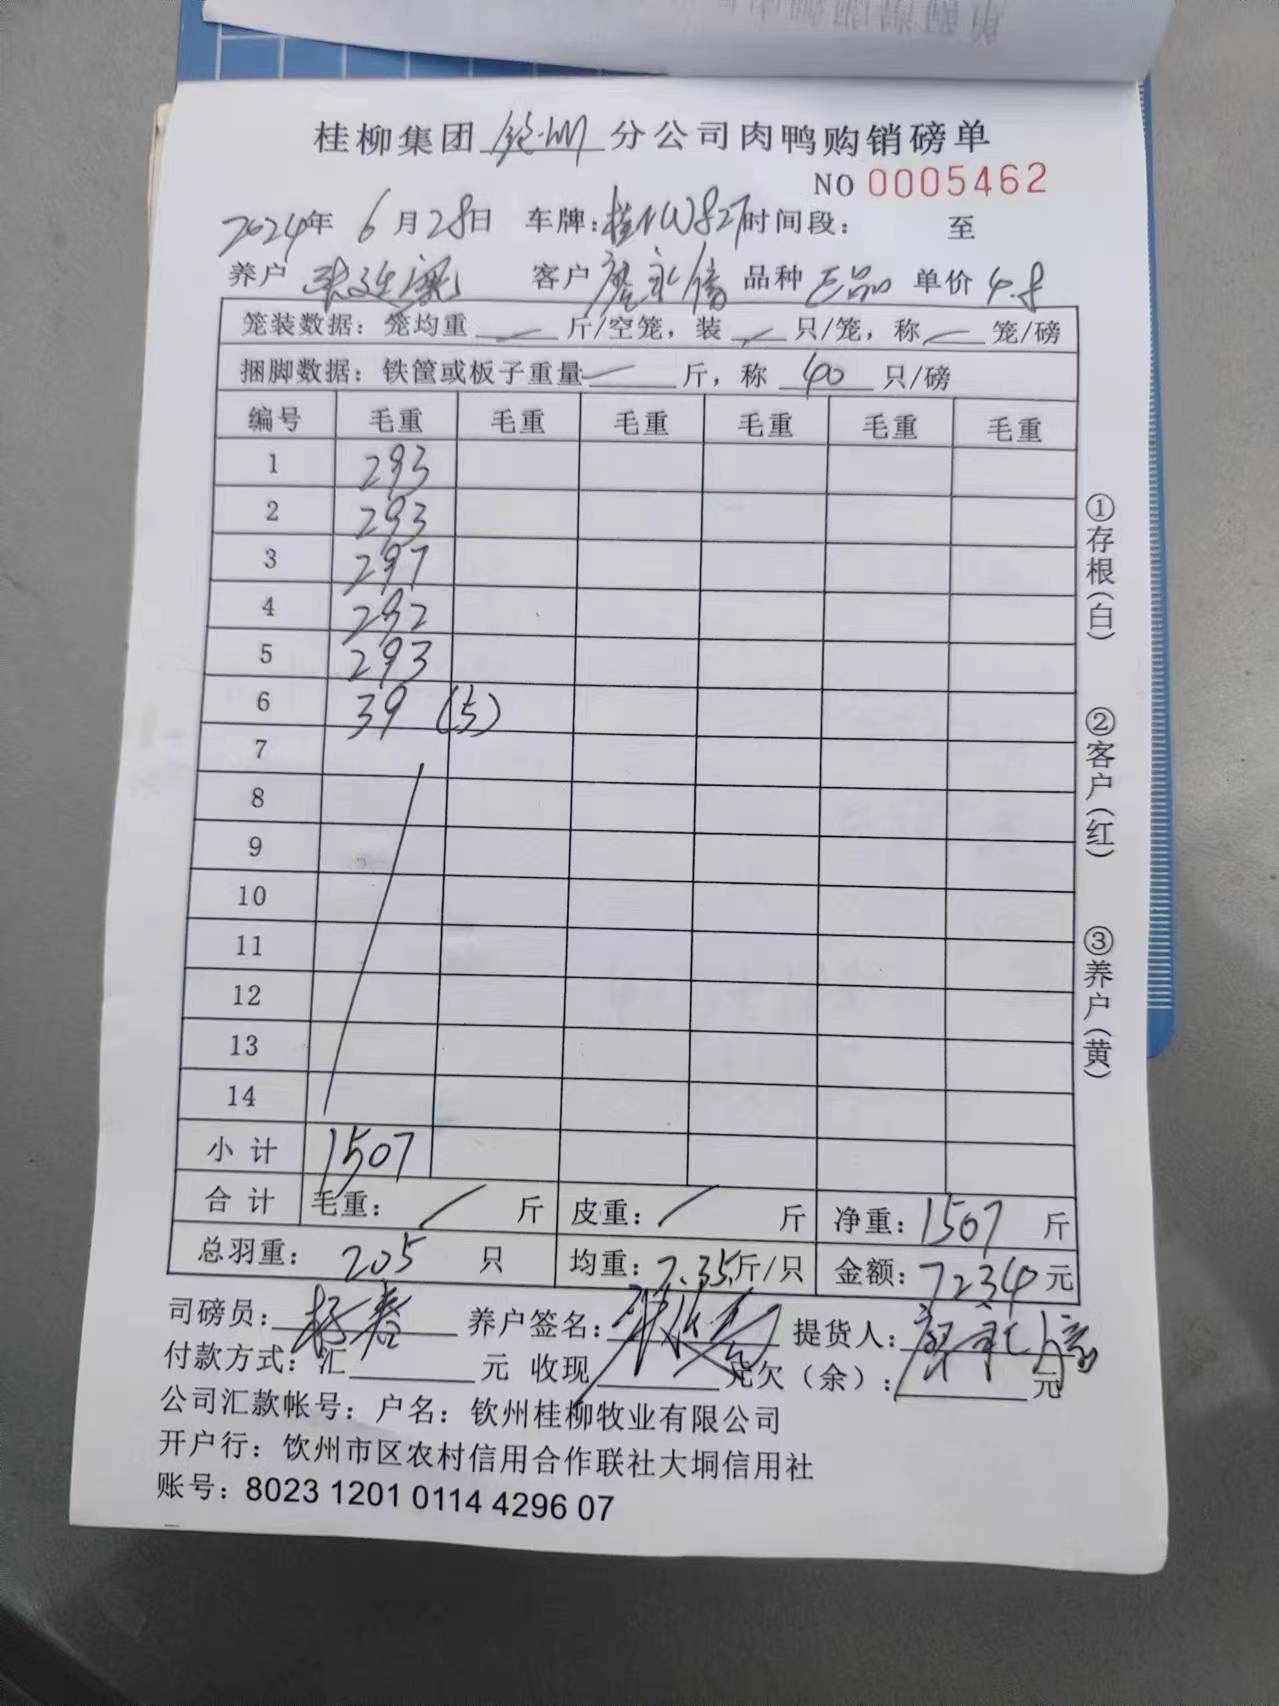 桂柳集团 钦州 分公司肉鸭购销磅单
NO 0005462
2024年 6月28日 车牌: 时间段: 至
养户 客户 詹永信 品种 正品 单价 4.8
笼装数据: 笼均重 — 斤/空笼, 装 — 只/笼, 称 — 笼/磅
捆脚数据: 铁筐或板子重量 — 斤, 称 40 只/磅
编号 毛重 毛重 毛重 毛重 毛重 毛重
1 293
2 293
3 297
4 292
5 293
6 39 (5)
7
8
9
10
11
12
13
14
小计 1507
合计 毛重: / 斤 皮重: / 斤 净重: 1507 斤
总羽重: 205 只 均重: 7.35斤/只 金额: 7234元
司磅员: 养户签名: 提货人:
付款方式: 汇 元 收现 元欠(余): 元
公司汇款帐号: 户名: 钦州桂柳牧业有限公司
开户行: 饮州市区农村信用合作联社大垌信用社
账号: 8023 1201 0114 4296 07
①存根(白) ②客户(红) ③养户(黄)